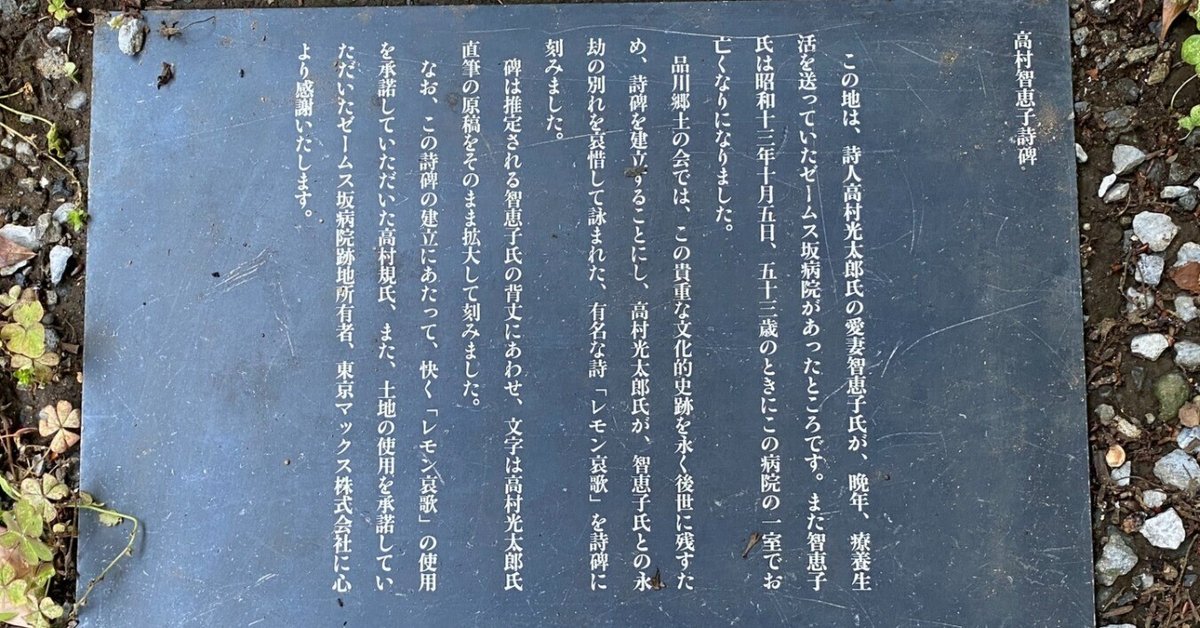 高村智恵子詩碑
この地は、詩人高村光太郎氏の愛妻智恵子氏が、晩年、療養生
活を送っていたゼームス坂病院があったところです。また智恵子
氏は昭和十三年十月五日、五十三歳のときにこの病院の一室でお
亡くなりになりました。
品川郷土の会では、この貴重な文化的史跡を永く後世に残すた
め、詩碑を建立することにし、高村光太郎氏が、智恵子氏との永
劫の別れを哀惜して詠まれた、有名な詩「レモン哀歌」を詩碑に
刻みました。
碑は推定される智恵子氏の背丈にあわせ、文字は高村光太郎氏
直筆の原稿をそのまま拡大して刻みました。
なお、この詩碑の建立にあたって、快く「レモン哀歌」の使用
を承諾していただいた高村規氏、また、土地の使用を承諾してい
ただいたゼームス坂病院跡地所有者、東京マックス株式会社に心
より感謝いたします。